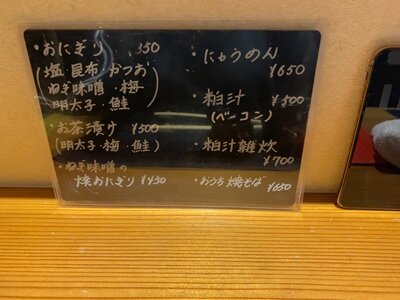 ・おにぎり 350
(塩 昆布・おつお
ねぎ味噌・梅
明太子・鮭)
・お茶漬け ¥500
(明太子・梅・鮭)
・ねぎ味噌の
焼おにぎり ¥450
・にゅうめん
¥650
・粕汁 ¥500
(ベーコン)
・粕汁雑炊
¥700
・おうち焼そば ¥650